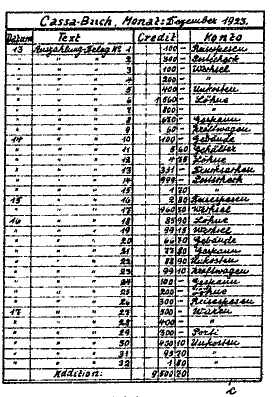 Cassa-Buch, Monat: Dezember 1923.
Datum Text Credit Konto
13 Auszahlung-Beleg No 1 100 - Reisespesen
" " " 2 300 - Postscheck
" " " 3 100 - Wechsel
" " " 4 200 - "
" " " 5 400 - Unkosten
" " " 6 1560 - Löhne
" " " 7 800 - "
" " " 8 - Gespann
" " " 9 60 - Kraftwagen
14 " " 10 100 - Gebäude
" " " 11 5 60 Gehälter
" " " 12 4 75 Löhne
" " " 13 331 -
" " " 14 999 - Postscheck
" " " 15 1 70 "
15 " " 16 2 80 Reisespesen
" " " 17 460 80 Wechsel
16 " " 18 85 90 Löhne
" " " 19 99 15 Wechsel
" " " 20 66 70 Gebäude
" " " 21 77 80 Gespann
" " " 22 88 90 Unkosten
" " " 23 99 10 Kraftwagen
" " " 24 100 - Gespann
" " " 25 200 - Löhne
" " " 26 300 - Reisespesen
17 " " 27 500 - Waren
" " " 28 400 - "
" " " 29 300 - Porti
" " " 30 400 10 Unkosten
" " " 31 95 70 "
" " " 32 1 80 "
Addition: 9501 70